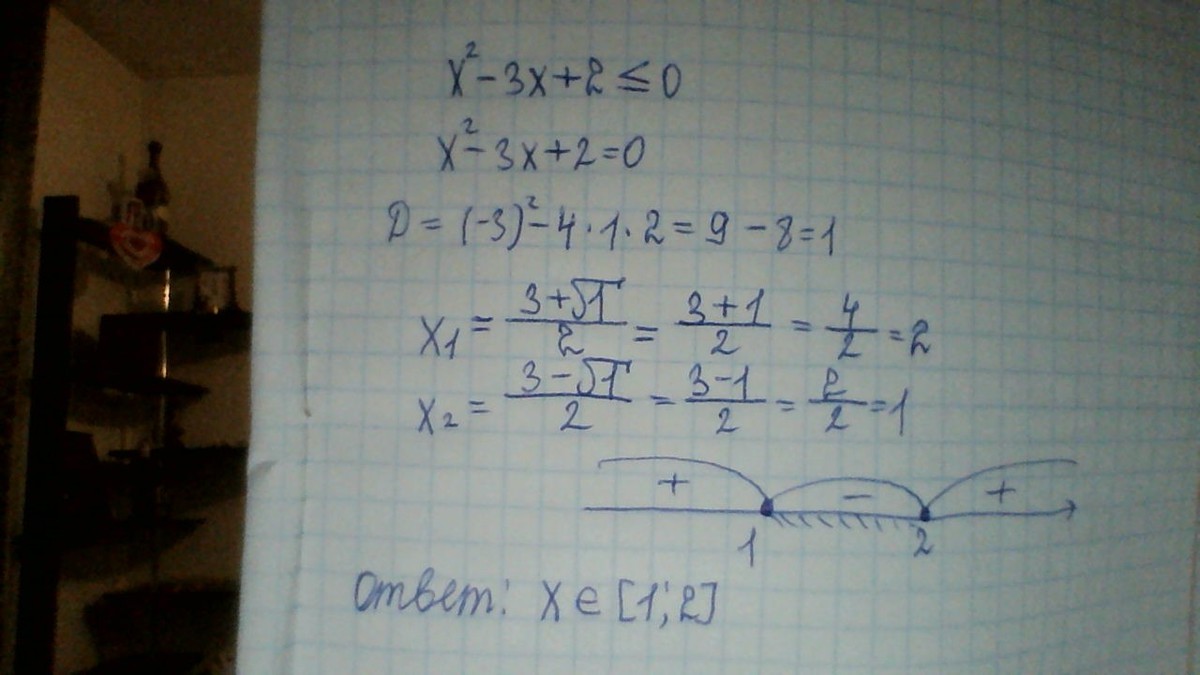 x²-3x+2≤0
x²-3x+2=0
D=(-3)²-4·1·2=9-8=1
x₁=(3+√1)/2=(3+1)/2=4/2=2
x₂=(3-√1)/2=(3-1)/2=2/2=1
+ - +
1 2
Ответ: x∈[1;2]